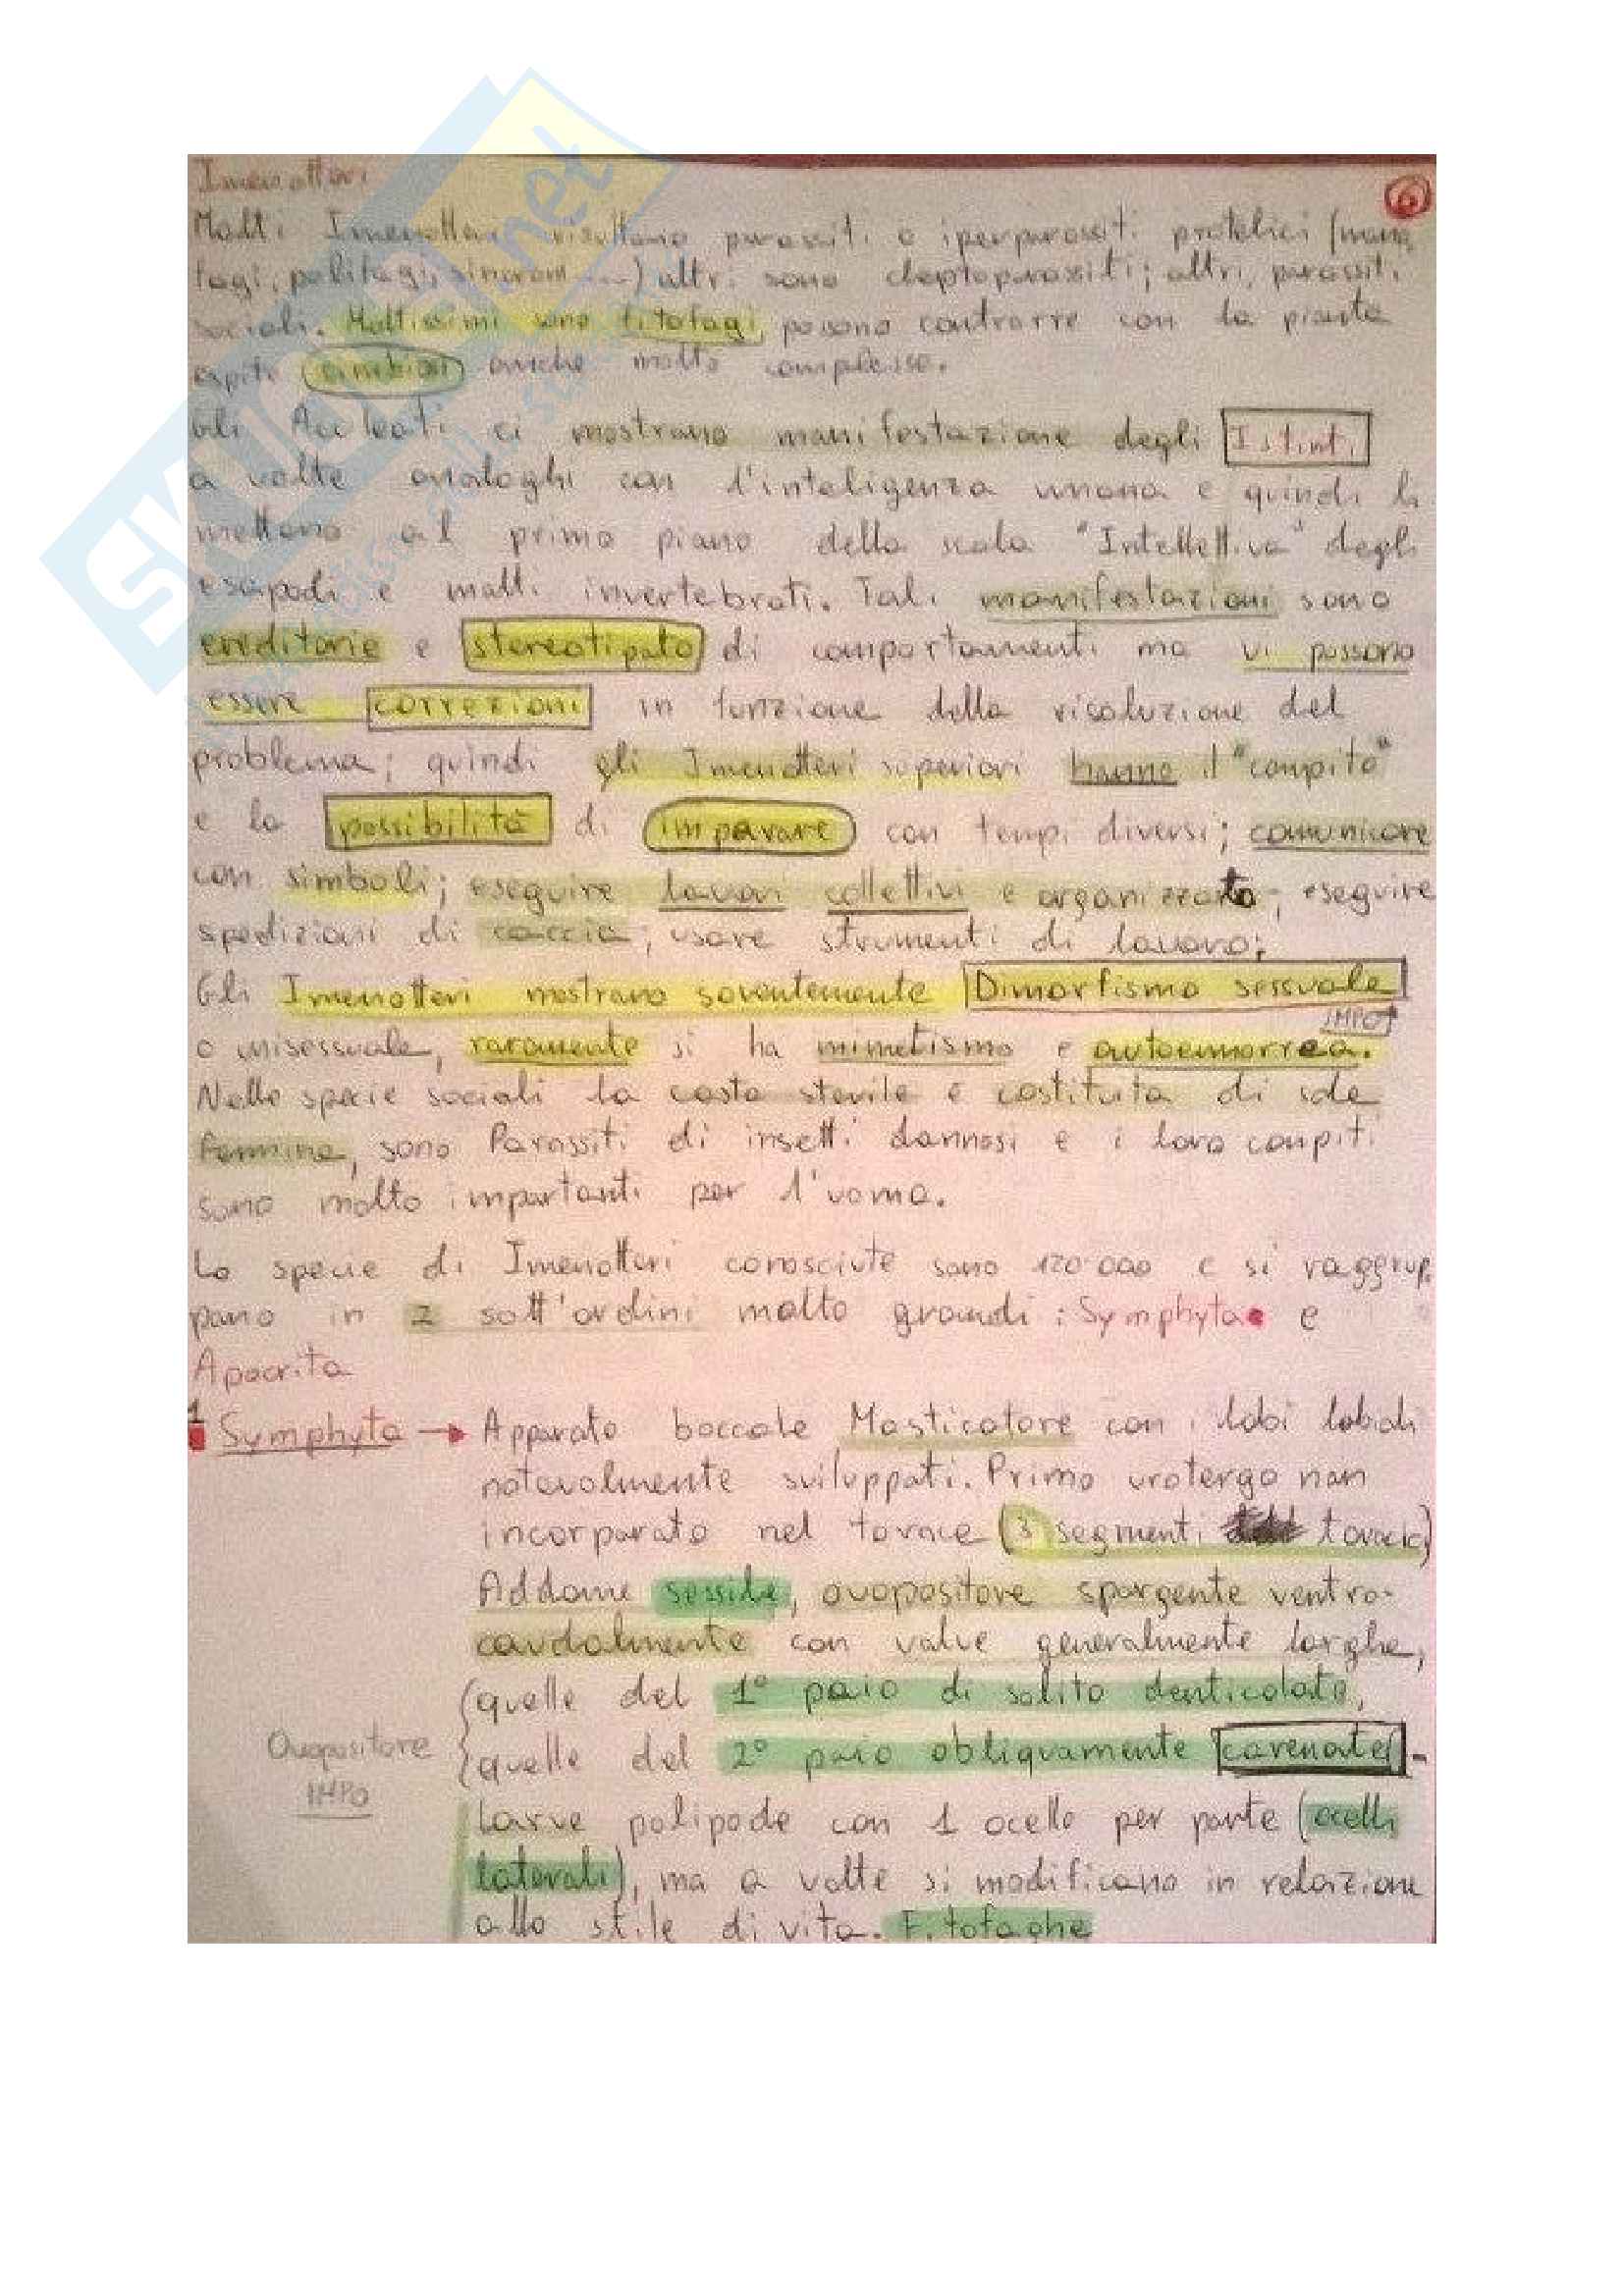 Imenotteri
6
Molti Imenotteri risultano parassiti o iperparassiti protelici (mono
fagi, polifagi, sincroni ...) altri sono cleptoparassiti; altri, parassiti
sociali. Moltissimi sono fitofagi, possono contrarre con la pianta
ospite simbiosi anche molto complesse.
Gli Aculeati ci mostrano manifestazione degli Istinti
a volte analoghi con l'inteligenza umana e quindi li
mettono al primo piano della scala "Intellettiva" degli
esapodi e molti invertebrati. Tali manifestazioni sono
ereditarie e stereotipato di comportamenti ma vi possono
essere correzioni in funzione della risoluzione del
problema; quindi gli Imenotteri superiori hanno il "compito"
e la possibilità di imparare con tempi diversi; comunicare
con simboli; eseguire lavori collettivi e organizzato; eseguire
spedizioni di caccia; usare strumenti di lavoro;
Gli Imenotteri mostrano soventemente Dimorfismo sessuale
IMPO
o unisessuale, raramente si ha mimetismo e autoemorrea.
Nelle specie sociali la casta sterile è costituita di sole
femmine, sono Parassiti di insetti dannosi e i loro compiti
sono molto importanti per l'uomo.
Le specie di Imenotteri conosciute sono 120.000 e si raggrup
pano in 2 sott'ordini molto grandi: Symphyta e
Apocrita
1 Symphyta → Apparato boccale Masticatore con i lobi labiali
notevolmente sviluppati. Primo urotergo non
incorporato nel torace (3 segmenti toracic)
Addome sessile, ovopositore sporgente ventro-
caudalmente con valve generalmente larghe,
quelle del 1° paio di solito denticolate,
Ovopositore
IMPO
quelle del 2° paio obliquamente carenate.
Larve polipode con 1 ocello per parte (ocelli
laterali), ma a volte si modificano in relazione
allo stile di vita. Fitofaghe
SKUOLA.net